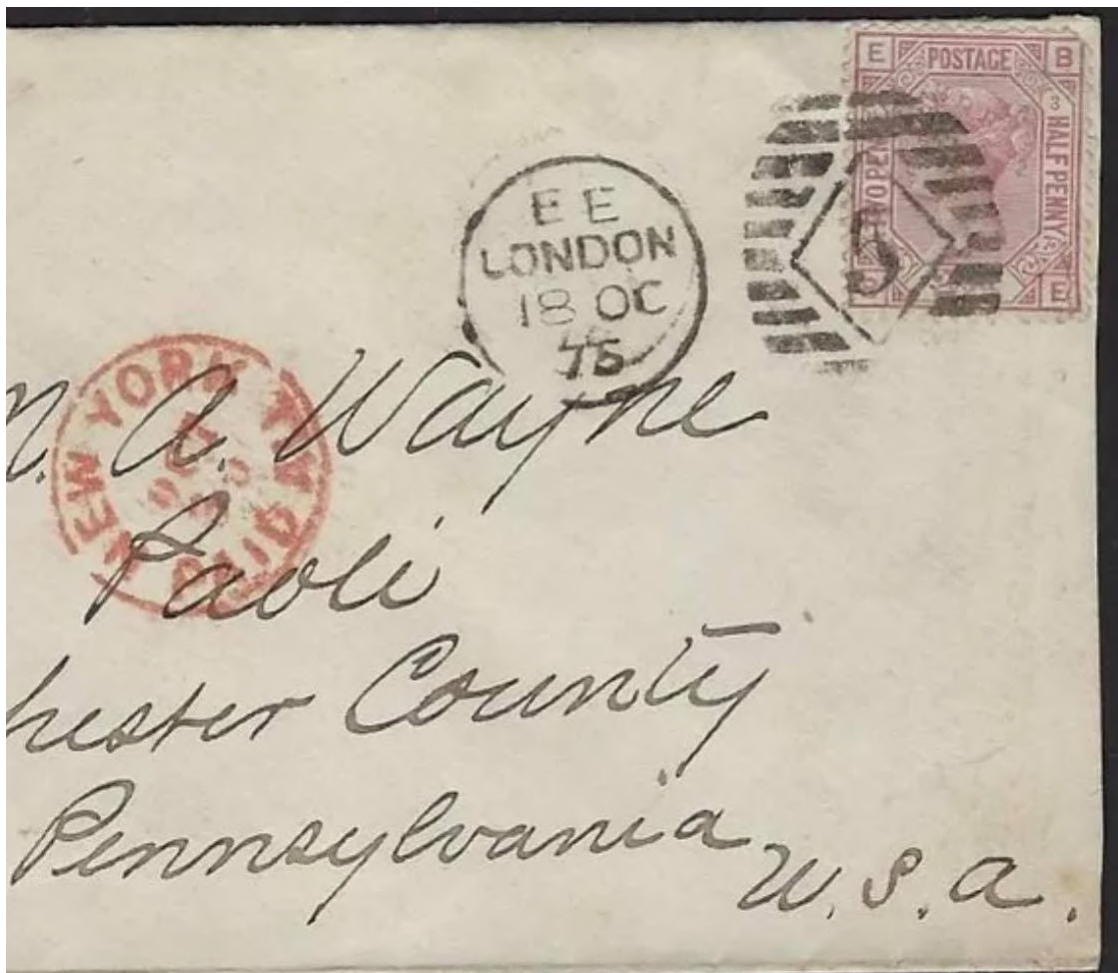 E POSTAGE B
TWO PEN
3 HALFPENNY
E
EE
LONDON
18 OC
75
NEW YORK
PAID
OCT
A. Wayne
Paoli
hester County
Pennsylvania
U.S.A.